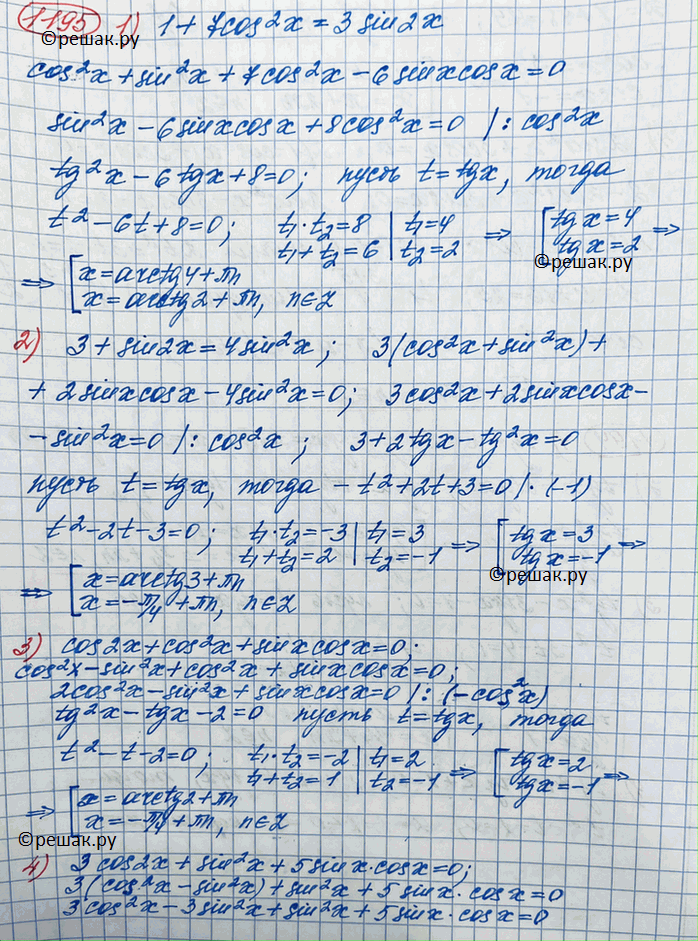 1195 1) 1 + 7cos²x = 3 sin2x
©решак.ру
cos²x + sin²x + 7cos²x − 6 sinx cosx = 0
sin²x − 6sinxcosx + 8cos²x = 0 | : cos²x
tg²x − 6tgx + 8 = 0; пусть t = tgx, тогда
t² − 6t + 8 = 0; t₁·t₂ = 8 | t₁ = 4 ⇒ [ tgx = 4 ⇒
t₁ + t₂ = 6 | t₂ = 2 tgx = 2
©решак.ру
⇒ [ x = arctg4 + πn
x = arctg2 + πn, n∈Z
2) 3 + sin2x = 4sin²x; 3(cos²x + sin²x) +
+ 2sinxcosx − 4sin²x = 0; 3cos²x + 2sinxcosx −
− sin²x = 0 | : cos²x; 3 + 2tgx − tg²x = 0
пусть t = tgx, тогда − t² + 2t + 3 = 0 | · (−1)
t² − 2t − 3 = 0; t₁·t₂ = −3 | t₁ = 3 ⇒ [ tgx = 3 ⇒
t₁ + t₂ = 2 | t₂ = −1 tgx = −1
©решак.ру
⇒ [ x = arctg3 + πn
x = −π/4 + πn, n∈Z
3) cos2x + cos²x + sinxcosx = 0;
cos²x − sin²x + cos²x + sinxcosx = 0;
2cos²x − sin²x + sinxcosx = 0 | : (−cos²x)
tg²x − tgx − 2 = 0 пусть t = tgx, тогда
t² − t − 2 = 0; t₁·t₂ = −2 | t₁ = 2 ⇒ [ tgx = 2 ⇒
t₁ + t₂ = 1 | t₂ = −1 tgx = −1
⇒ [ x = arctg2 + πn
x = −π/4 + πn, n∈Z
©решак.ру
4) 3cos2x + sin²x + 5sinx·cosx = 0;
3(cos²x − sin²x) + sin²x + 5sinx·cosx = 0
3cos²x − 3sin²x + sin²x + 5sinx·cosx = 0